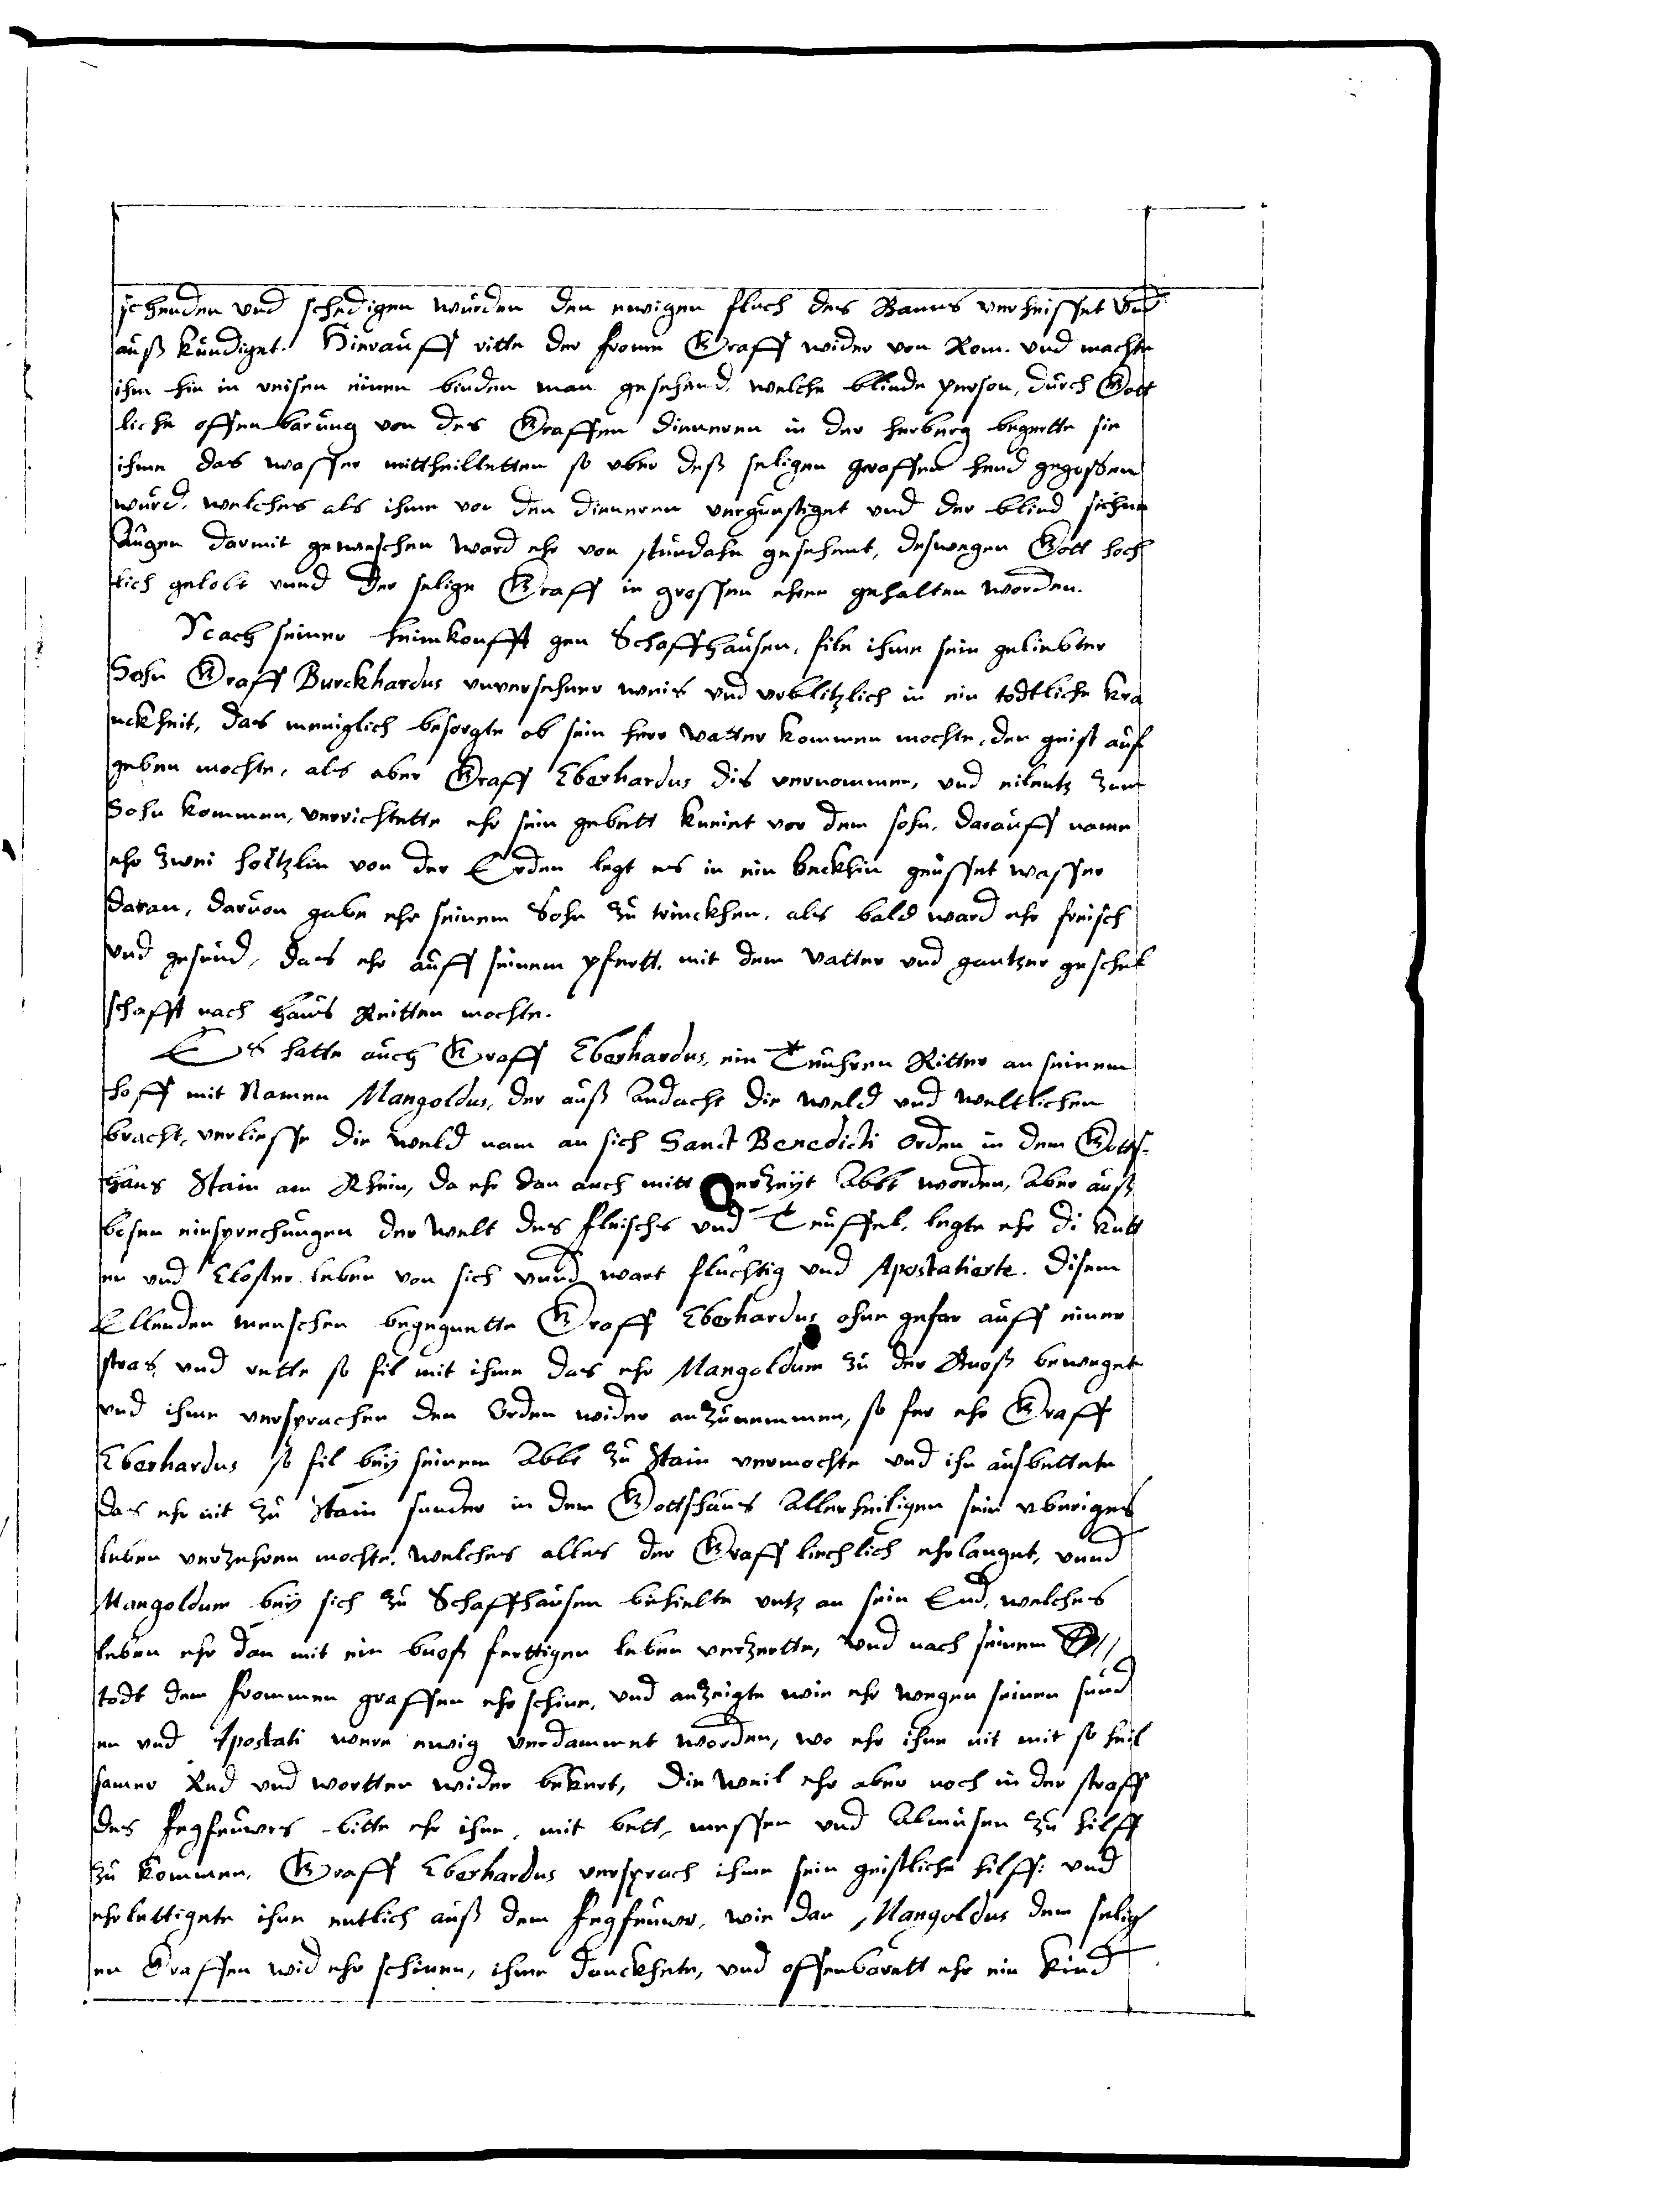 schenden und schedigen wurden den ewigen fluch des Banns verheisset und
auß kündiget. Hierauff ritte der from Graff wider von Rom. und machte
ihm hin in reisen einen binden man gesehend, welche blinde person, durch Gott
liche offenbarung von des Graffen dieneren in der herberg begertte sie
ihme das wasser mittheilletten so vber deß seligen graffen hend gegossen
wurd, welches als ihme von den dieneren vergünstiget und der blind sichne
Augen darmit geweschen ward ehr von stundahn gesehent, deswegen Gott hoch
lich gelobt unnd der selige Graff in grossen ehren gehalten worden.
Nach seiner heimkonfft gen Schaffhausen, file ihme sein geliebter
Sohn Graff Burckhardus unversehner weis und urblitzlich in ein todtliche kra
nckheit, das meniglich besorgte ob sein herr vatter kommen mochte, den geist auf
geben mochte, als aber Graff Eberhardus dis vernommen, und eilentz zum
Sohn kommen, verrichtette ehr sein gebett kneiet vor dem sohn, darauff name
ehr zwei holtzlin von der Erden legt es in ein becklin geusset wasser
daran, darvon gabe ehr seinem Sohn zu trinckhen, als bald ward ehr freisch
und gesund, das ehr auff seinem pfertt, mit dem vatter und gantzer geschel
schafft nach haus Reitten mochte.
Es hatte auch Graff Eberhardus, ein Teuhren Ritter an seinem
hoff mit Namen Mangoldus, der auß Andacht die weld und weltlichen
bracht, verliesse die weld nam an sich Sanct Benedicti Orden in dem Gotts-
haus Stain am Rhein, da ehr dan auch mitt der zeyt Abbt worden, Aber auß
bosen einsprechungen der welt des fleischs und Teuffel, legte ehr di kutt
en und Closter leben von sich unnd wart fluchtig und Apostatierte. Disem
Ellenden menschen begegnette Graff Eberhardus ohne gefar auff einer
stras, und rette so fil mit ihme das ehr Mangoldum zu der Buoß beweget
und ihme versprachen den Orden wider anzunemmen, so fer ehr Graff
Eberhardus so fil bey seinem Abbt zu Stain vermochte und ihn ausbettete
das ehr nit zu Stain sunder in dem Gottshaus Allerheiligen sein vberiges
leben verzehren mochte, welches alles der Graff liechtlich ehrlanget, unnd
Mangoldum bey sich zu Schaffhausen behielte untz an sein End, welches
leben ehr dan mit ein buoß ferttigen leben verzertte, und nach seinem
todt dem frommen graffen ehrschine, und anzeigte wie ehr wegen seinen sund
en und Apostati were ewig verdammet worden, wo ehr ihne nit mit so heil
samer Red und wortten wider bekert, die weil ehr aber noch in der straff
des fegfeuwrs bitte ehr ihne, mit bett, messen und Almusen zu hilff
zu kommen. Graff Eberhardus versprach ihme sein geistliche hilff: und
ehrlettigete ihne entlich auß dem fegfeuwr, wie dan Mangoldus dem selig
en Graffen wid ehrschinen, ihme danckhete, und offenbarett ehr ein kind